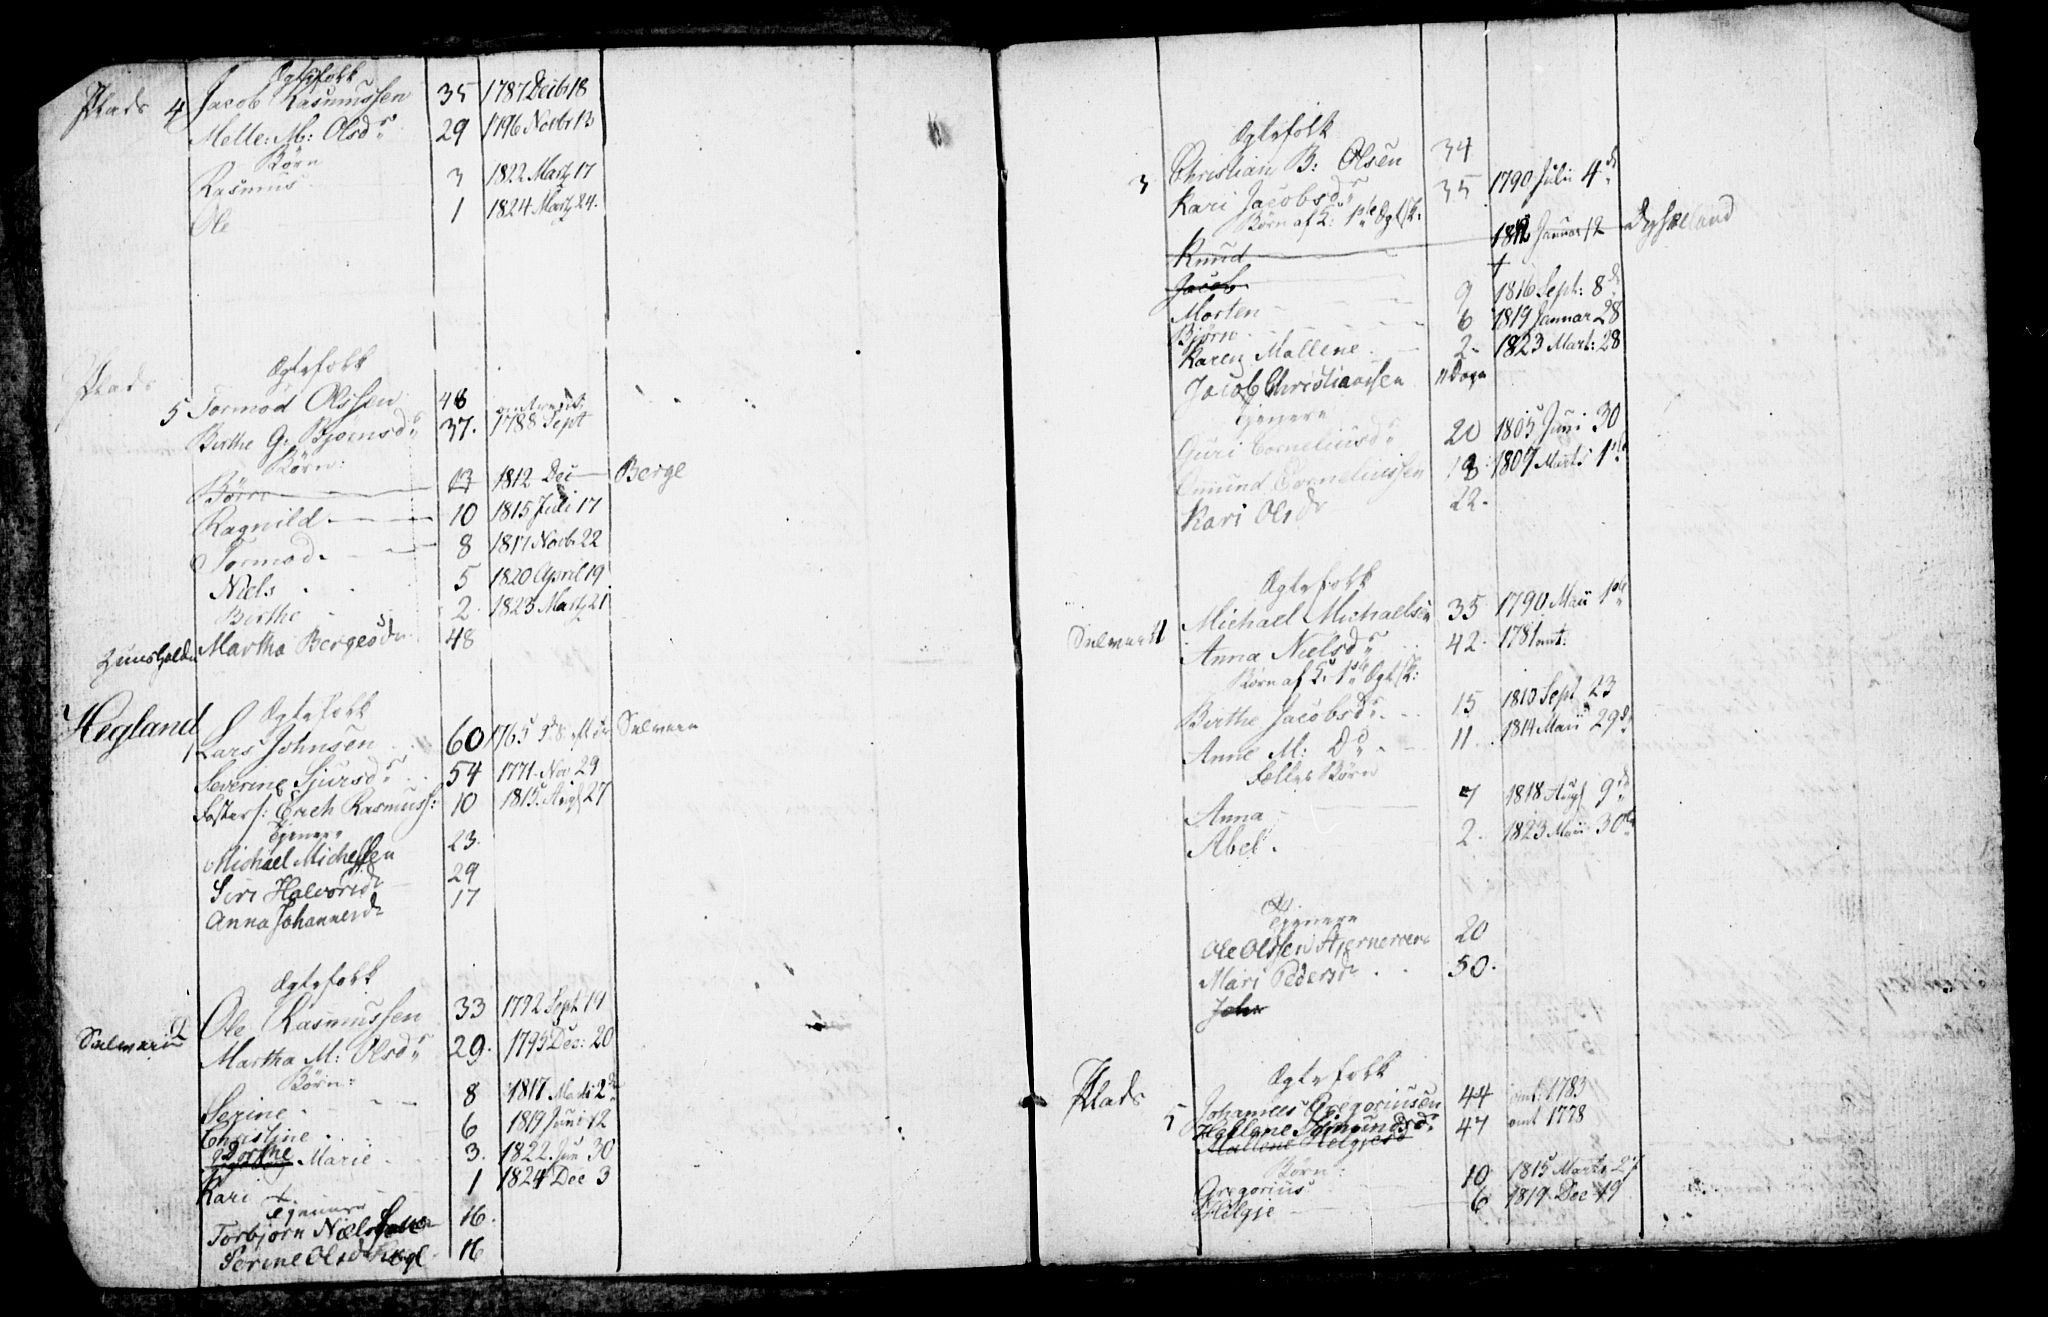 Ægtefolk
Plads 4 Jacob Rasmussen 35 1787 Decbr 18
Melle: M: Olsdr 29 1796 Novbr 13
Børn
Rasmus 3 1822 Marts 17
Ole 1 1824 Marts 24.
Ægtefolk
Plads 5 Tormod Olssen 48
Birthe G: Bjørnsdr 37. 1788 Sept
Børn:
Børn 13 1812 Dec Berge
Ragnild 10 1815 Juli 17
Tormod 8 1817 Novb 22
Niels 5 1820 April 19
Birthe 2. 1823 Marts 21
Martha Bergesdr 48
Ægtefolk
Hegland 1 Lars Johnsen 60 1765
Severine Sjursdr 54 1771 Nov 29
Fosters: Erich Rasmuss: 10 1815. Aug 27
Tjenere
Michael Michelsen 23.
Siri Halvorsdr 29
Anna Johannesdr 17
Ægtefolk
2 Ole Rasmussen 33 1792 Sept 19
Martha M: Olsdr 29. 1795 Dec: 20
Børn:
Serine 8 1817 Marts 2
Christine 6 1819 Juni 12
Dorthe Marie 3. 1822. Jun 30
Kari 1 1824 Dec 3
Tjenere
Torbjørn Niels 16.
Serine Olsdr 16
Ægtefolk
3 Christian B: Olsen 34
Kari Jacobsdr 35 1790 Juli 4de
Børn af K: 1ste Ægtsk:
Knud 1812 Januar 12
Jacob †
Morten 9 1816 Sept: 8de
Bjørn 6 1819 Januar 28
Karen Mallene 2 1823 Mart: 28
Jacob Christiansen 11 Dage
Tjenere
Guri Corneliusdr 20 1805 Juni 30
Omund Corneliussen 18 1807 Marts 1ste
Kari Olsdr 22.
Ægtefolk
Michael Michaelsen 35 1790 Maii 1ste
Anna Nielsdr 42. 1781 omt:
Børn af K: 1ste Ægtsk:
Birthe Jacobsdr 15 1810 Sept 23
Anne M: Do 11. 1814 Maii 29de
Fælles Børn
Anna 7 1818 Aug 9de
Abel 2. 1823 Maii 30te
Tjenere
Ole Olssen 20
Mari Pedersdr 50.
John
Ægtefolk
Plads 5 Johannes Gregoriusen 44 omt: 1783
Hallene Tomundsdr 47 omt 1778
Mallene Helgjesdr
Børn:
Gregorius 10 1815 Marts 27
Helgje 6 1819 Dec 19